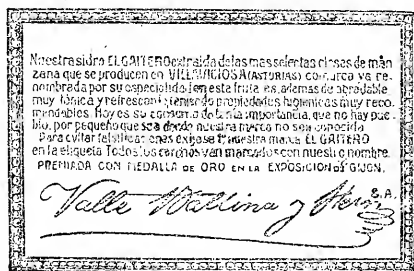 Nuestra sidra EL GAITERO extraida de las mas selectas clases de man
zana que se producen en VILLAVICIOSA (ASTURIAS) comarca ya re-
nombrada por su especialidad en esta fruta es, ademas de agradable
muy tónica y refrescante, teniendo propiedades higienicas muy reco
mendables. Hoy es su consumo de tanta importancia, que no hay pue-
blo, por pequeño que sea donde nuestra marca no sea conocida
Para evitar falsificaciones exijase nuestra marca EL GAITERO
en la etiqueta Todos los corchos van marcados con nuestro nombre.
PREMIADA CON MEDALLA DE ORO EN LA EXPOSICION DE GIJON.
Valle Ballina y Fern S.A.